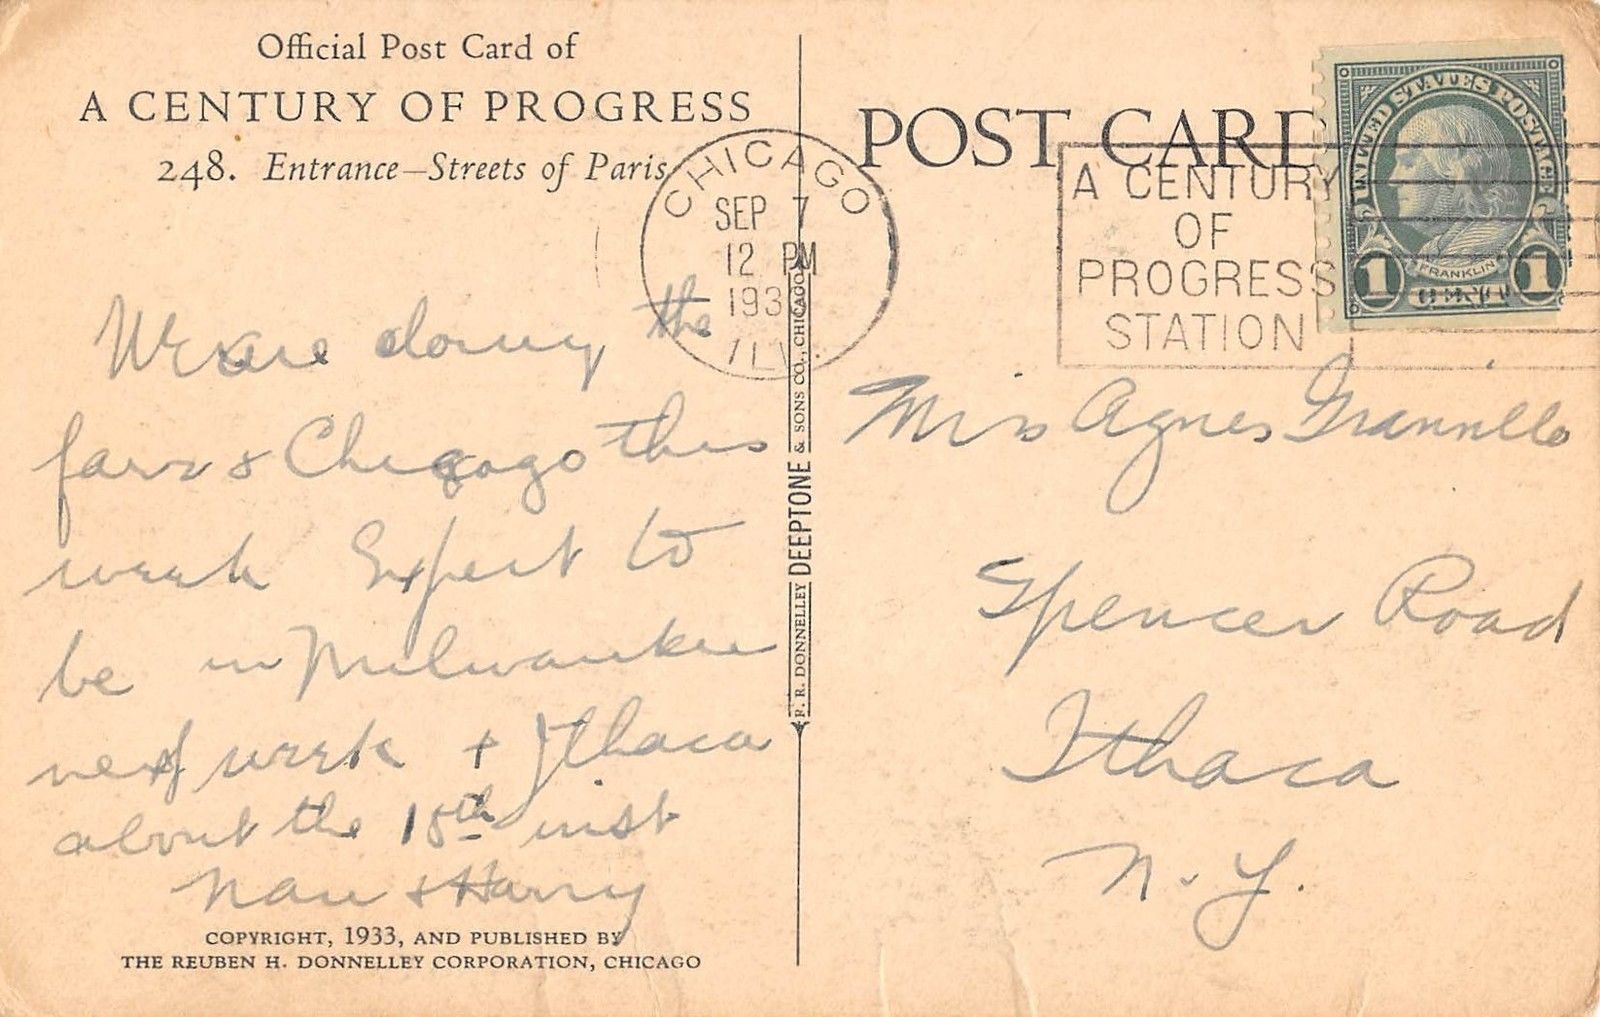 Official Post Card of
A CENTURY OF PROGRESS
248. Entrance—Streets of Paris
We are doing the
fair & Chicago this
week Expect to
be in Milwaukee
next week + Ithaca
about the 18th inst
Nan + Harry
COPYRIGHT, 1933, AND PUBLISHED BY
THE REUBEN H. DONNELLEY CORPORATION, CHICAGO
R. R. DONNELLEY DEEPTONE & SONS CO., CHICAGO
CHICAGO
SEP 7
12 PM
193
ILL.
POST CARD
A CENTURY
OF
PROGRESS
STATION
UNITED STATES POSTAGE
FRANKLIN
1 1
Miss Agnes
Spencer Road
Ithaca
N. Y.